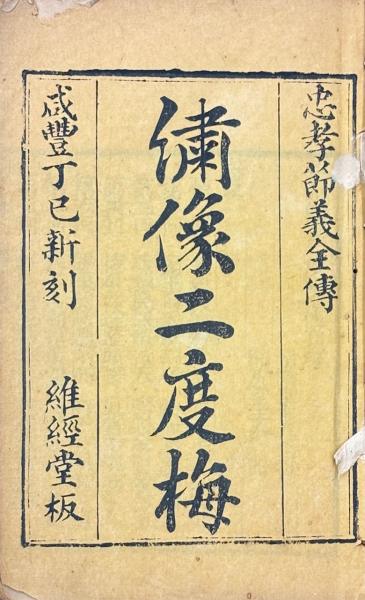 忠孝節義全傳
繡像二度梅
咸豐丁巳新刻
維經堂板